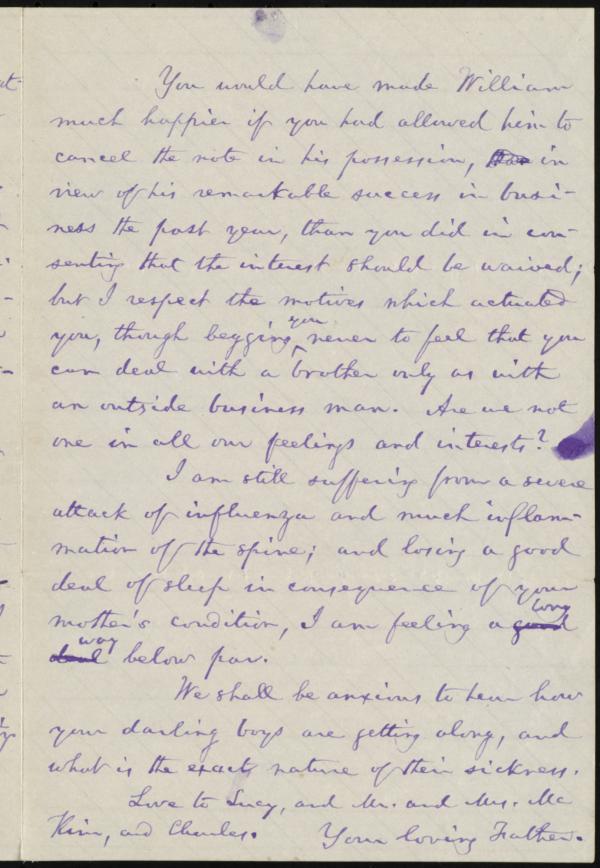 You would have made William
much happier if you had allowed him to
cancel the note in his possession, in
view of his remarkable success in busi-
ness the past year, than you did in con-
senting that the interest should be waived;
but I respect the motives which actuated
you, though begging you never to feel that you
can deal with a brother only as with
an outside business man. Are we not
one in all our feelings and interests?
I am still suffering from a severe
attack of influenza and much inflam-
mation of the spine; and losing a good
deal of sleep in consequence of your
mother's condition, I am feeling a good long
deal way below par.
We shall be anxious to hear how
your darling boys are getting along, and
what is the exact nature of their sickness.
Love to Lucy, and Mr. and Mrs. Mc
Kim, and Charles. Your loving Father.